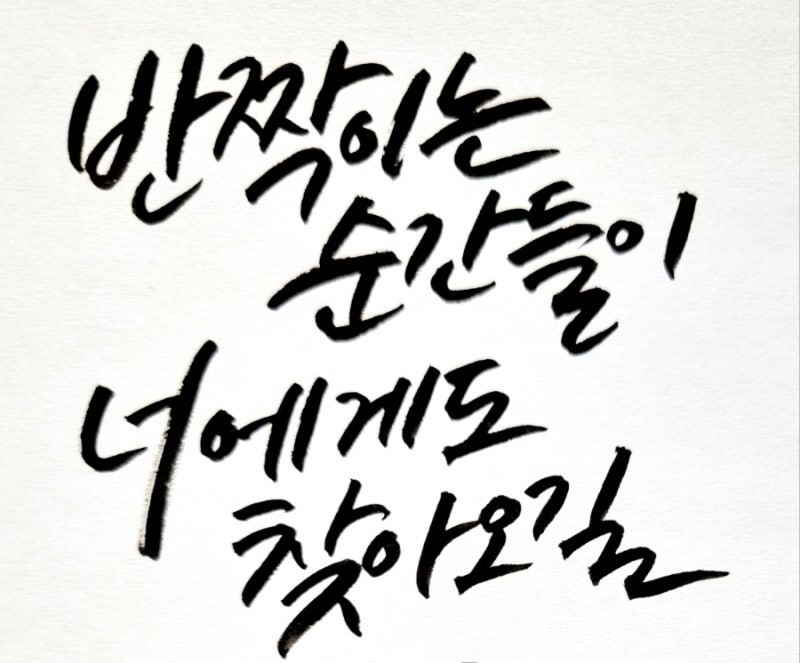 반짝이는
순간들이
너에게도
찾아오길